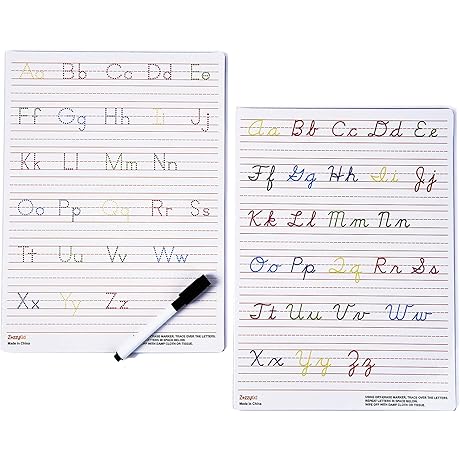 Aa Bb Cc Dd Ee
Ff Gg Hh Ii Jj
Kk Ll Mm Nn
Oo Pp Qq Rr Ss
Tt Uu Vv Ww
Xx Yy Zz
Made in China
USING DRY-ERASE MARKER, TRACE OVER THE LETTERS.
REPEAT LETTERS IN SPACE BELOW.
WIPE OFF WITH DAMP CLOTH OR TISSUE.
Aa Bb Cc Dd Ee
Ff Gg Hh Ii Jj
Kk Ll Mm Nn
Oo Pp Qq Rr Ss
Tt Uu Vv Ww
Xx Yy Zz
Made in China
USING DRY-ERASE MARKER, TRACE OVER THE LETTERS.
REPEAT LETTERS IN SPACE BELOW.
WIPE OFF WITH DAMP CLOTH OR TISSUE.